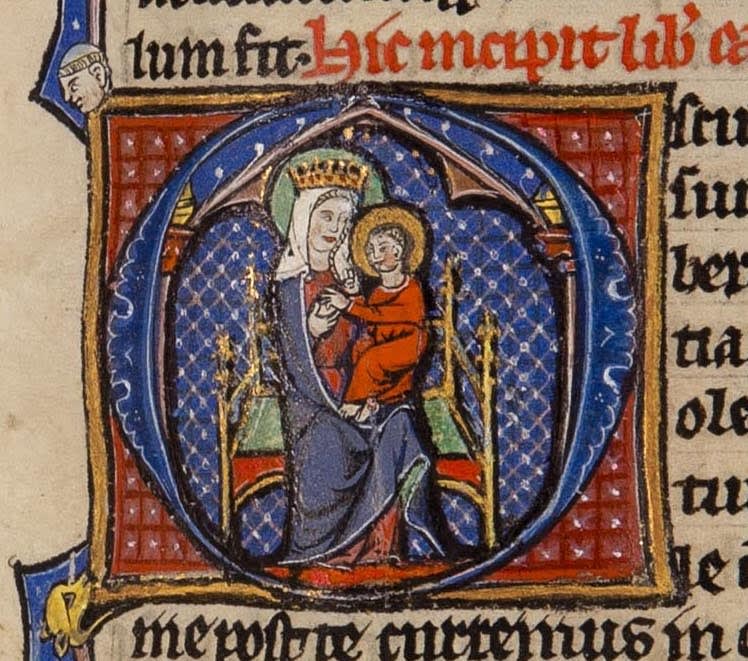 lum fit. Hic incipit lib' ca
Oscu
sun
ber
tia
ole
tu
le
me post te curremus in o